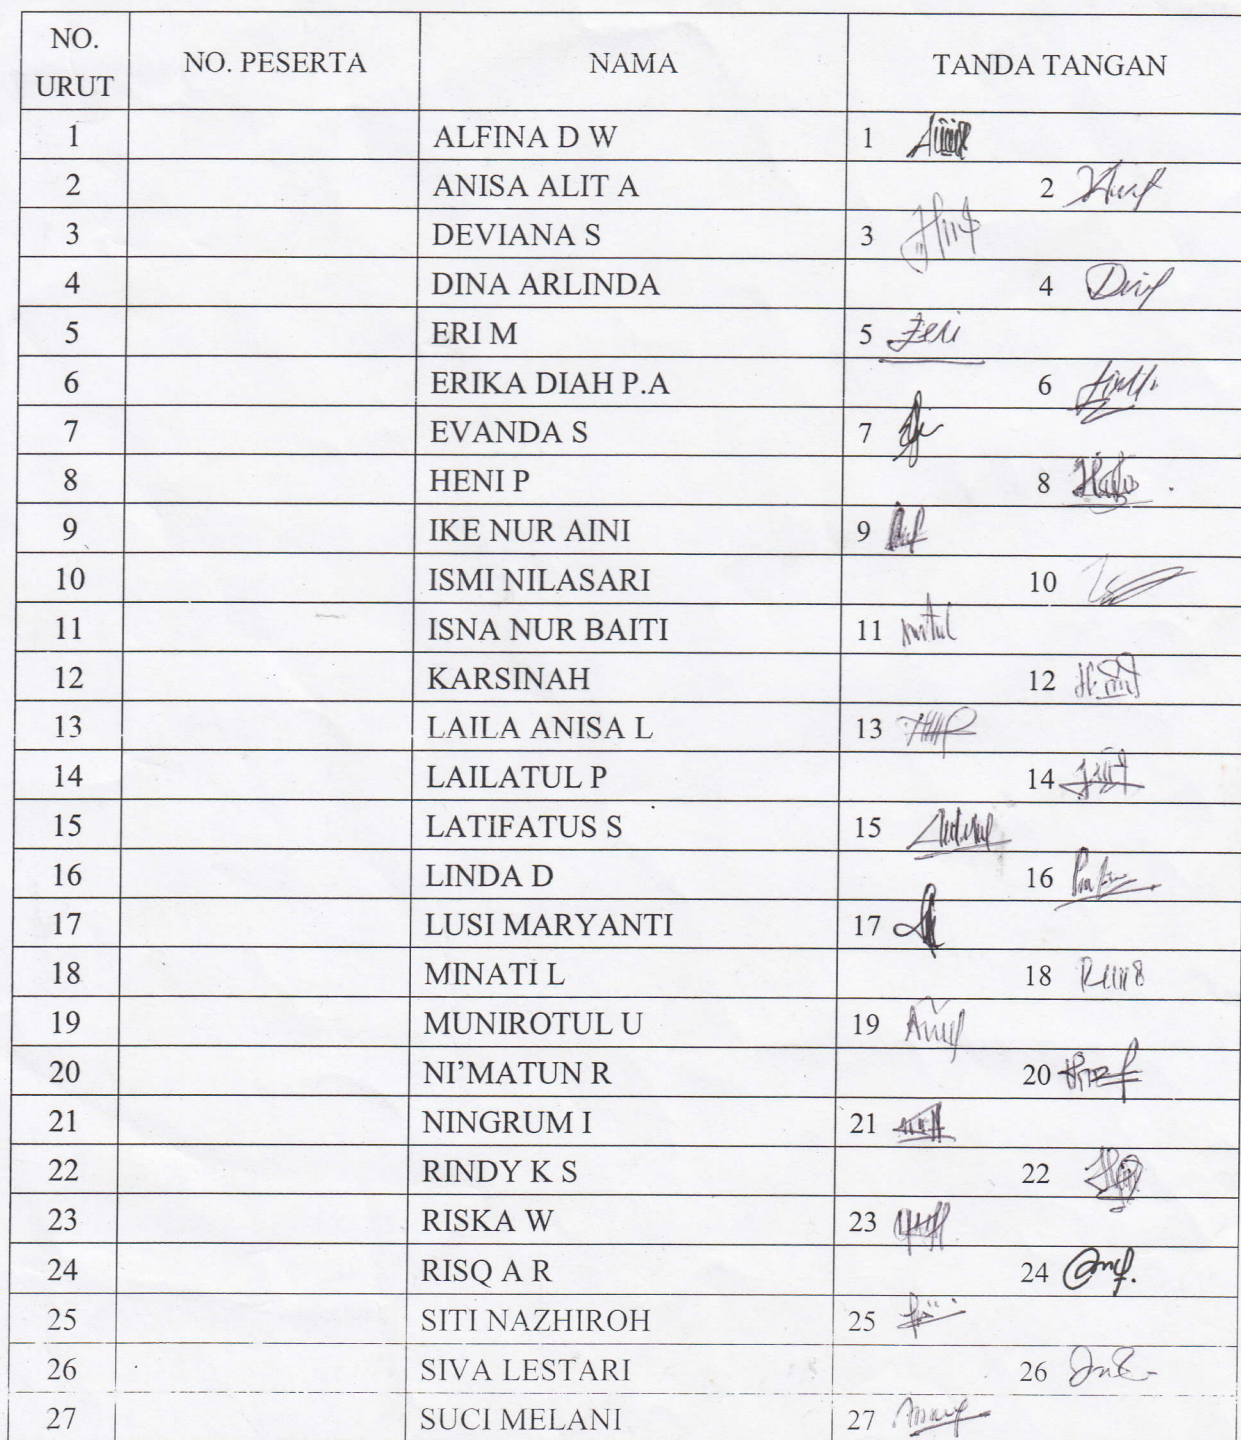 NO. URUT NO. PESERTA NAMA TANDA TANGAN
1 ALFINA D W 1
2 ANISA ALIT A 2
3 DEVIANA S 3
4 DINA ARLINDA 4
5 ERI M 5
6 ERIKA DIAH P.A 6
7 EVANDA S 7
8 HENI P 8
9 IKE NUR AINI 9
10 ISMI NILASARI 10
11 ISNA NUR BAITI 11
12 KARSINAH 12
13 LAILA ANISA L 13
14 LAILATUL P 14
15 LATIFATUS S 15
16 LINDA D 16
17 LUSI MARYANTI 17
18 MINATI L 18
19 MUNIROTUL U 19
20 NI’MATUN R 20
21 NINGRUM I 21
22 RINDY K S 22
23 RISKA W 23
24 RISQ A R 24
25 SITI NAZHIROH 25
26 SIVA LESTARI 26
27 SUCI MELANI 27